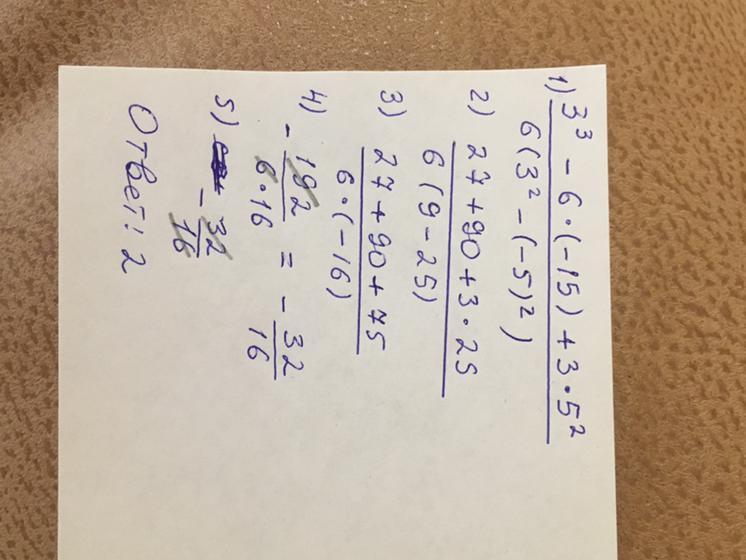 1) 3³ - 6·(-15) + 3·5²
6(3² - (-5)²)
2) 27 + 90 + 3·25
6(9 - 25)
3) 27 + 90 + 75
6·(-16)
4) - 192 / 6·16 = - 32 / 16
5) - 32 / 16
Ответ: 2